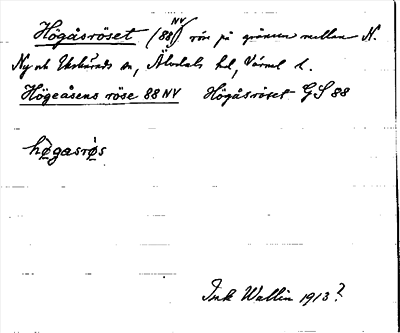 Högåsröset (88 NV) röse på gränsen mellan N.
Ny och Ekshärads sn, Älvdals hd, Värml l.
Högeåsens röse 88 NV Högåsröset GS 88
hø̀gasrø̀s
Ink Wallin 1913?